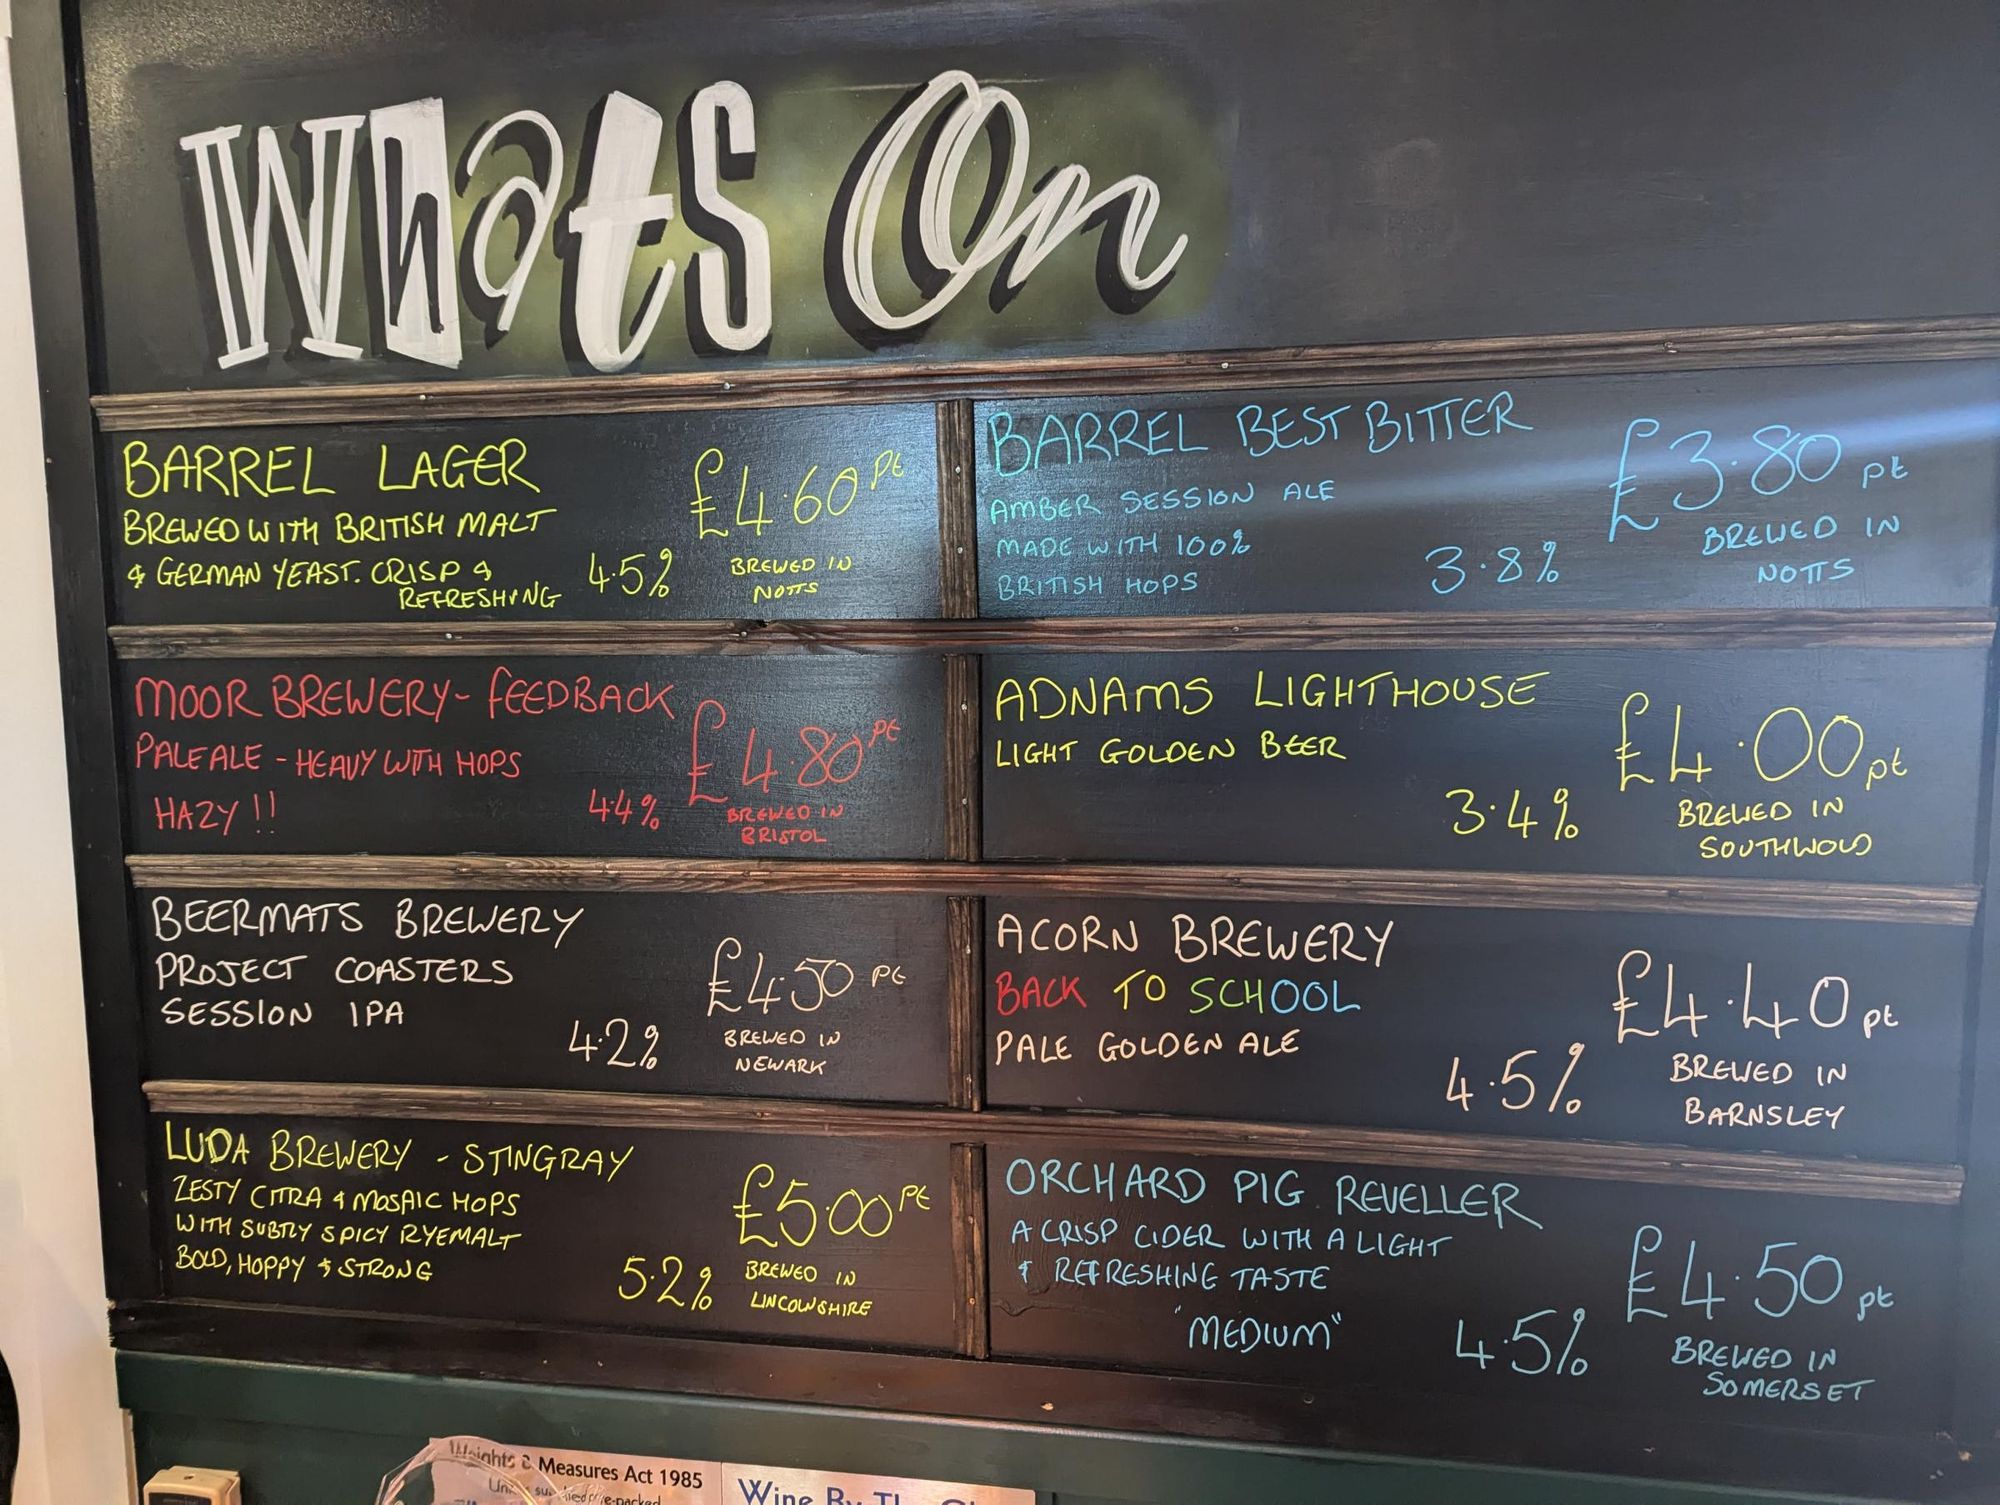 Whats On
BARREL LAGER
BREWED WITH BRITISH MALT
& GERMAN YEAST. CRISP &
REFRESHING
4.5%
£4.60 pt
BREWED IN
NOTTS
BARREL BEST BITTER
AMBER SESSION ALE
MADE WITH 100%
BRITISH HOPS
3.8%
£3.80 pt
BREWED IN
NOTTS
MOOR BREWERY - FEEDBACK
PALE ALE - HEAVY WITH HOPS
HAZY !!
4.4%
£4.80 pt
BREWED IN
BRISTOL
ADNAMS LIGHTHOUSE
LIGHT GOLDEN BEER
3.4%
£4.00 pt
BREWED IN
SOUTHWOLD
BEERMATS BREWERY
PROJECT COASTERS
SESSION IPA
4.2%
£4.50 pt
BREWED IN
NEWARK
ACORN BREWERY
BACK TO SCHOOL
PALE GOLDEN ALE
4.5%
£4.40 pt
BREWED IN
BARNSLEY
LUDA BREWERY - STINGRAY
ZESTY CITRA & MOSAIC HOPS
WITH SUBTLY SPICY RYEMALT
BOLD, HOPPY & STRONG
5.2%
£5.00 pt
BREWED IN
LINCOLNSHIRE
ORCHARD PIG REVELLER
A CRISP CIDER WITH A LIGHT
& REFRESHING TASTE
"MEDIUM"
4.5%
£4.50 pt
BREWED IN
SOMERSET
Weights & Measures Act 1985
Wine By The